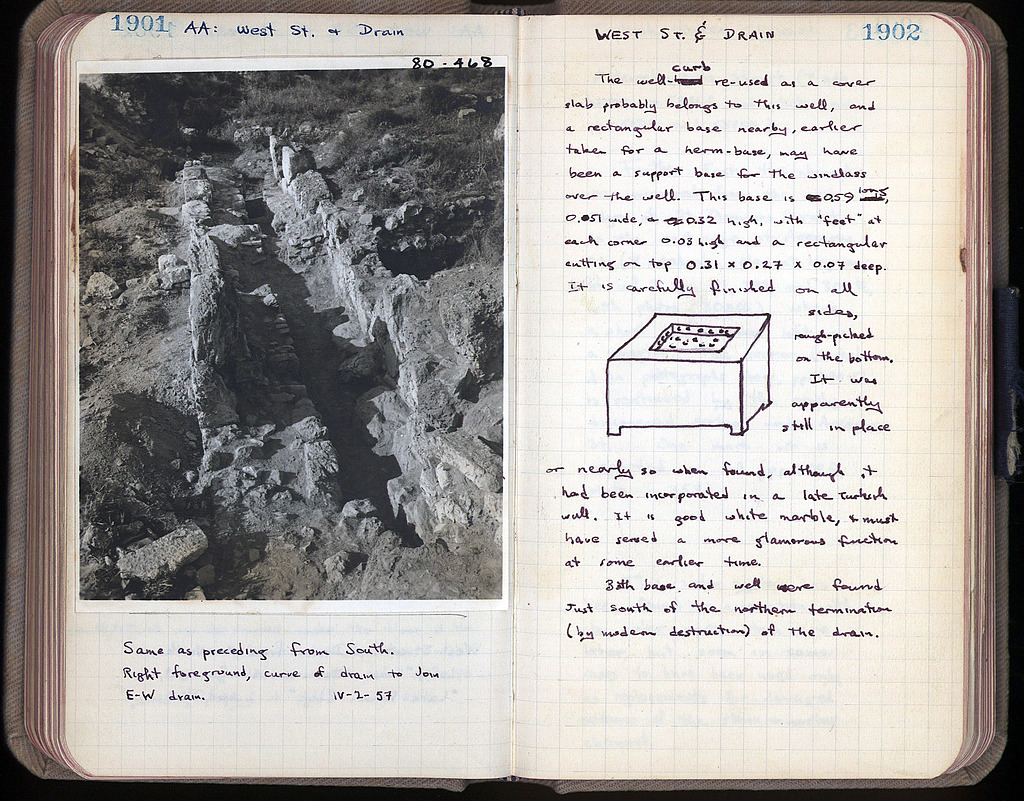 1901 AA: West St. & Drain
80-468
Same as preceding from South.
Right foreground, curve of drain to join
E-W drain. IV-2-57
WEST ST. & DRAIN 1902
curb
The well- re-used as a cover
slab probably belongs to this well, and
a rectangular base nearby, earlier
taken for a herm-base, may have
been a support base for the windlass
over the well. This base is 0.59 long,
0.051 wide, & 0.32 high, with "feet" at
each corner 0.03 high and a rectangular
cutting on top 0.31 x 0.27 x 0.07 deep.
It is carefully finished on all
sides,
rough-picked
on the bottom.
It was
apparently
still in place
or nearly so when found, although it
had been incorporated in a late Turkish
wall. It is good white marble, & must
have served a more glamorous function
at some earlier time.
Both base and well were found
just south of the northern termination
(by modern destruction) of the drain.